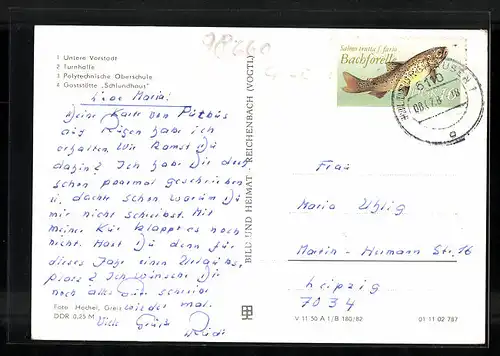 1 Untere Vorstadt
2 Turnhalle
3 Polytechnische Oberschule
4 Gaststätte „Schlundhaus"
Liebe Maria!
Deine Karte von Putbus
auf Rügen habe ich
erhalten. Wie kamst Du
dahin? Ich habe Dir doch
schon paarmal geschrieben
u. dachte schon warum Du
mir nicht schreibst. Mit
meiner Kur klappt es noch
nicht. Hast Du denn für
dieses Jahr einen Urlaubs-
platz? Ich wünsche Dir
noch alles Gute schreibe
wieder mal.
Viele Grüße
Rudi
Foto: Höchel, Greiz
DDR 0,25 M
BILD UND HEIMAT · REICHENBACH (VOGTL)
98660
Salmo trutta f. fario
Bachforelle
6110
Frau
Maria Uhlig
Martin-Hermann Str. 16
Leipzig
7034
V 11 50 A 1/B 180/82
01 11 02 787